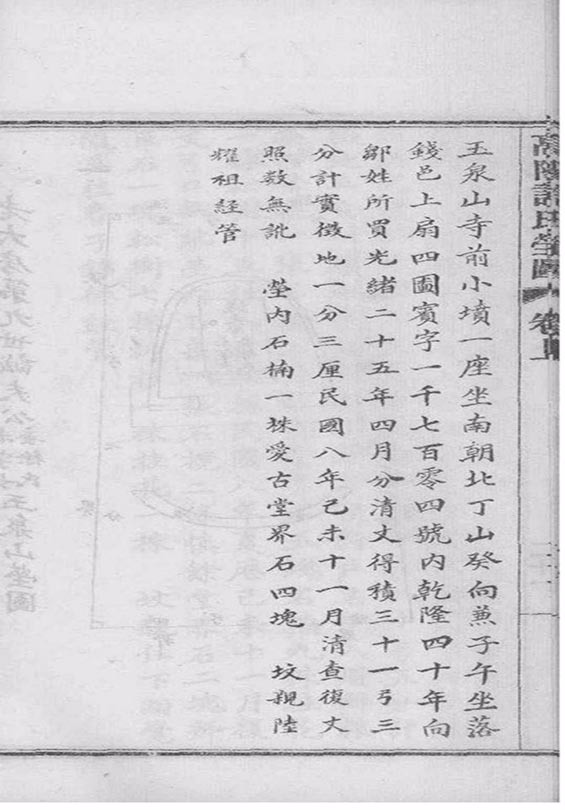 高陽許氏塋圖 卷上
玉泉山寺前小墳一座坐南朝北丁山癸向兼子午坐落
錢邑上扇四圖賓字一千七百零四號內乾隆四十年向
鄒姓所買光緒二十五年四月分清丈得積三十一弓三
分計實徵地一分三厘民國八年己未十一月清查復丈
照数無訛 塋內石楠一株愛古堂界石四塊 坟親陸
耀祖經管